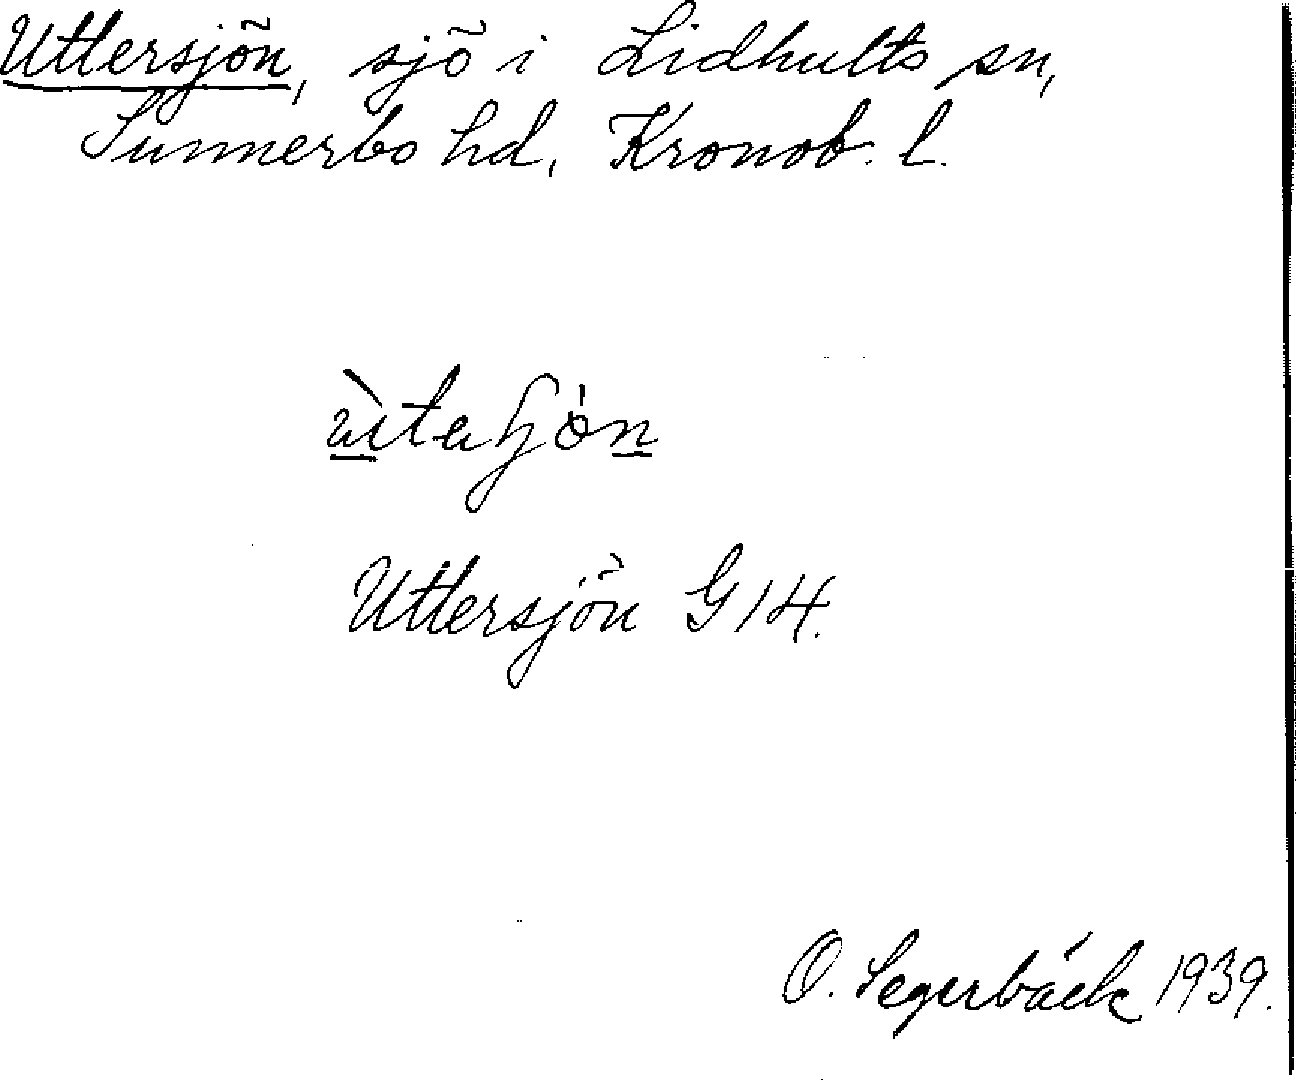 Uttersjön, sjö i Lidhults sn,
Sunnerbo hd, Kronob. l.
Uttersjön G14.
O. Segerbäck 1939.